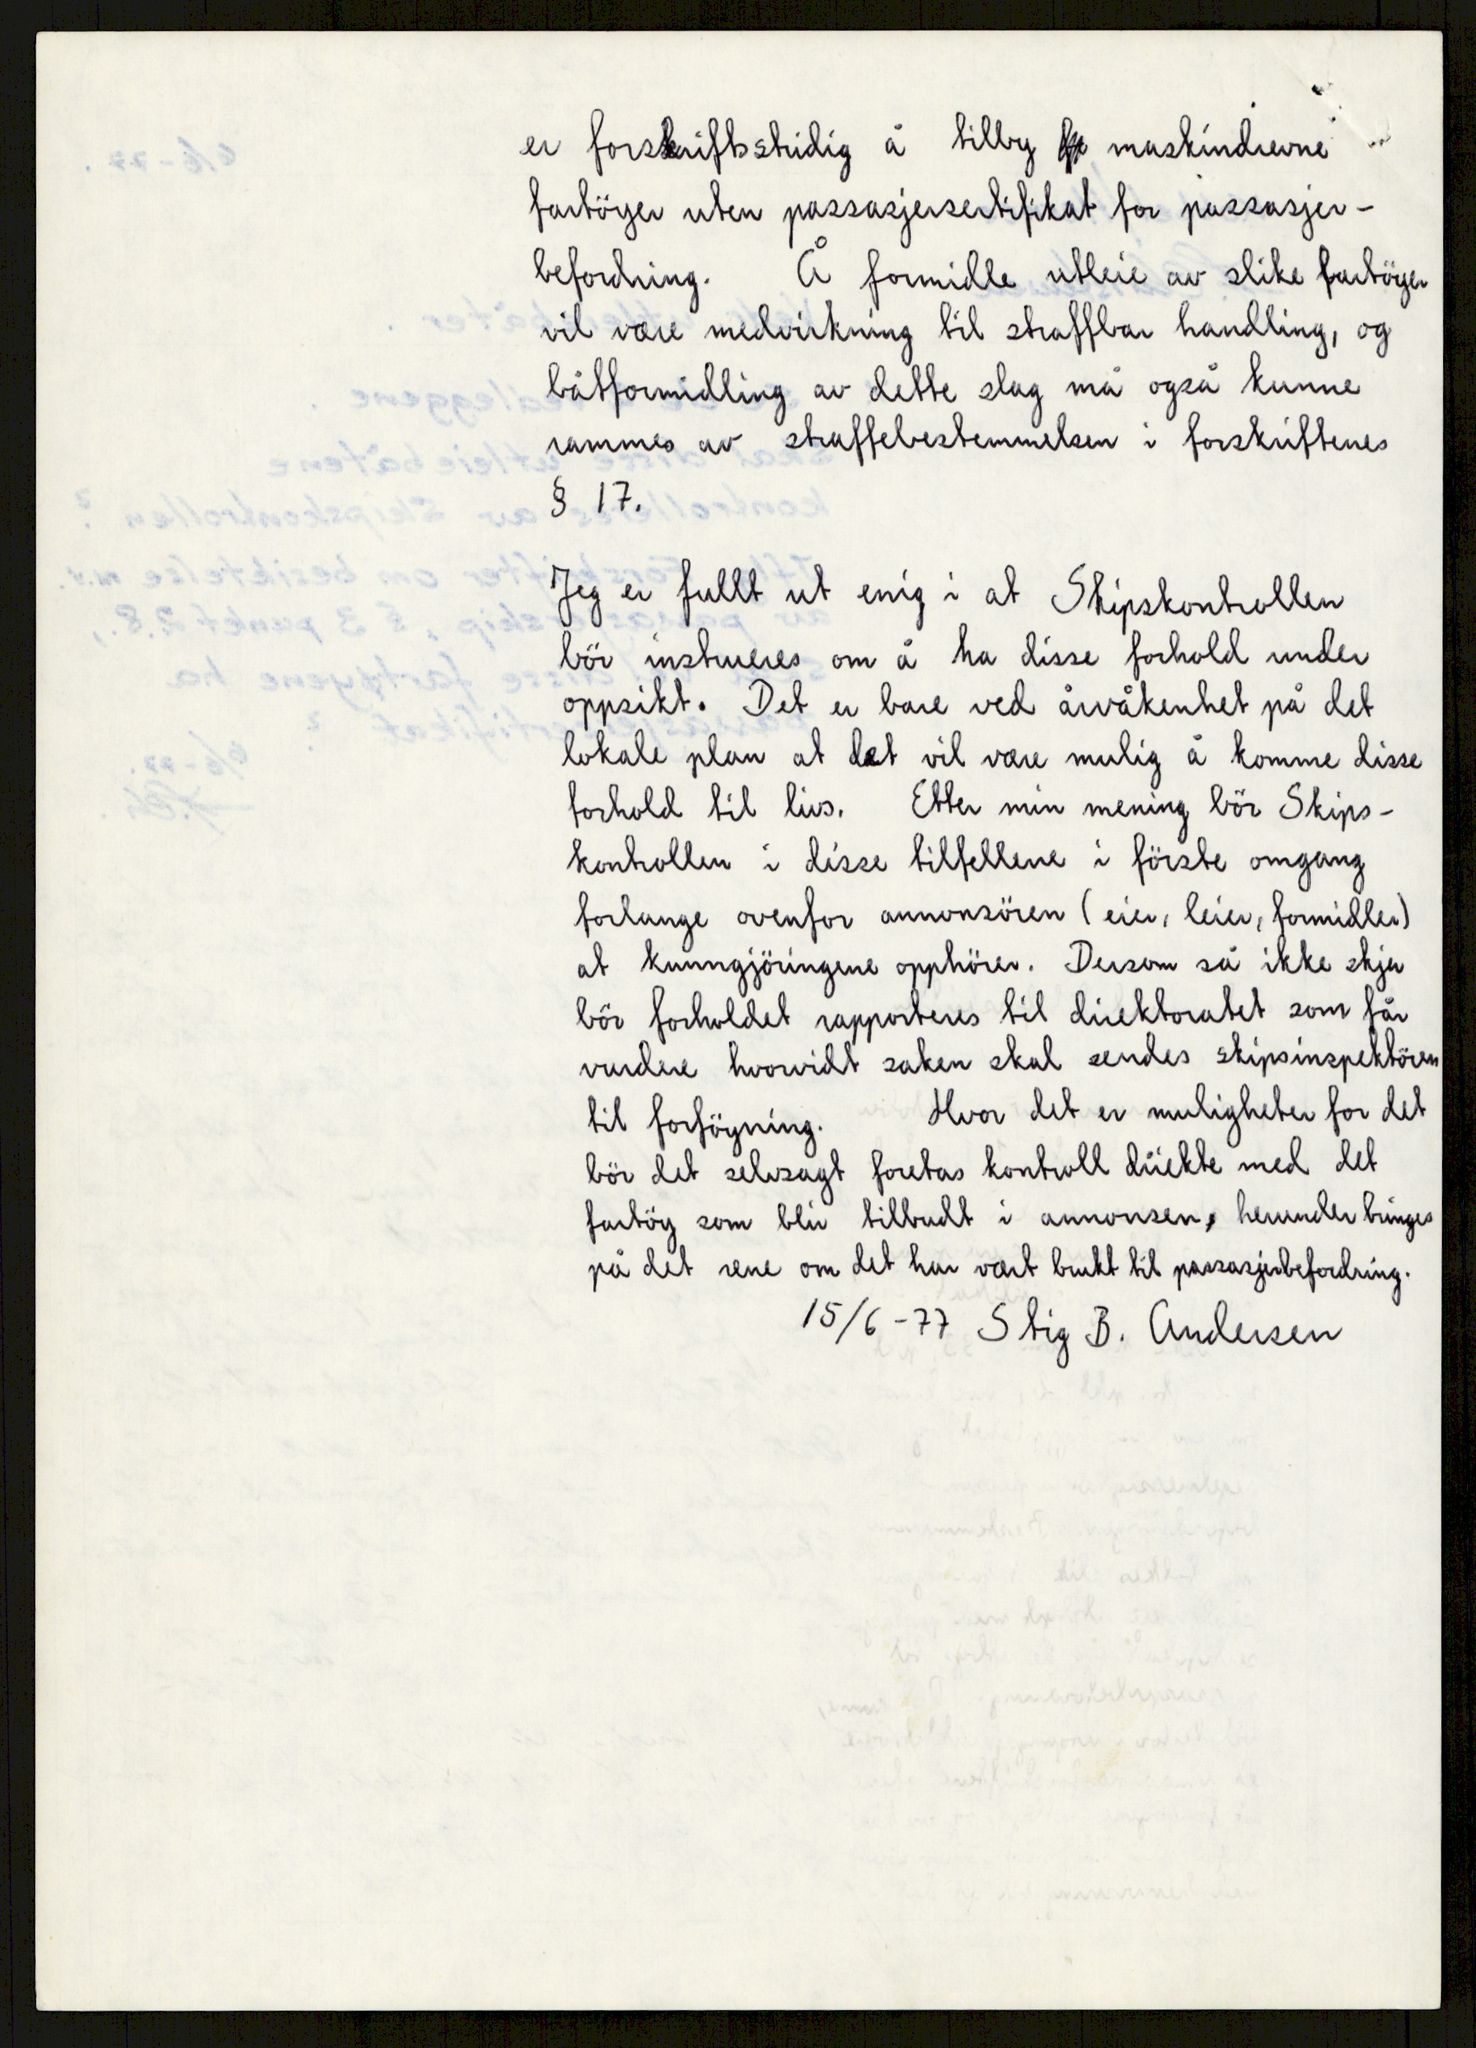 er forskriftsstridig å tilby maskindrevne
fartöyer uten passasjersertifikat for passasjer-
befordring. Å formidle utleie av slike fartöyer
vil være medvirkning til straffbar handling, og
båtformidling av dette slag må også kunne
rammes av straffebestemmelsen i forskriftenes
§ 17.
Jeg er fullt ut enig i at Skipskontrollen
bör instrueres om å ha disse forhold under
oppsikt. Det er bare ved årvåkenhet på det
lokale plan at det vil være mulig å komme disse
forhold til livs. Etter min mening bör Skips-
kontrollen i disse tilfellene i förste omgang
forlange ovenfor annonsören (eier, leier, formidler)
at kunngjöringene opphörer. Dersom så ikke skjer
bör forholdet rapporteres til direktoratet som får
vurdere hvorvidt saken skal sendes skipsinspektören
til forföyning. Hvor det er muligheter for det
bör det selvsagt foretas kontroll direkte med det
fartöy som blir tilbudt i annonsen, herunder bringes
på det rene om det har vært brukt til passasjerbefordring.
15/6-77 Stig B. Andersen